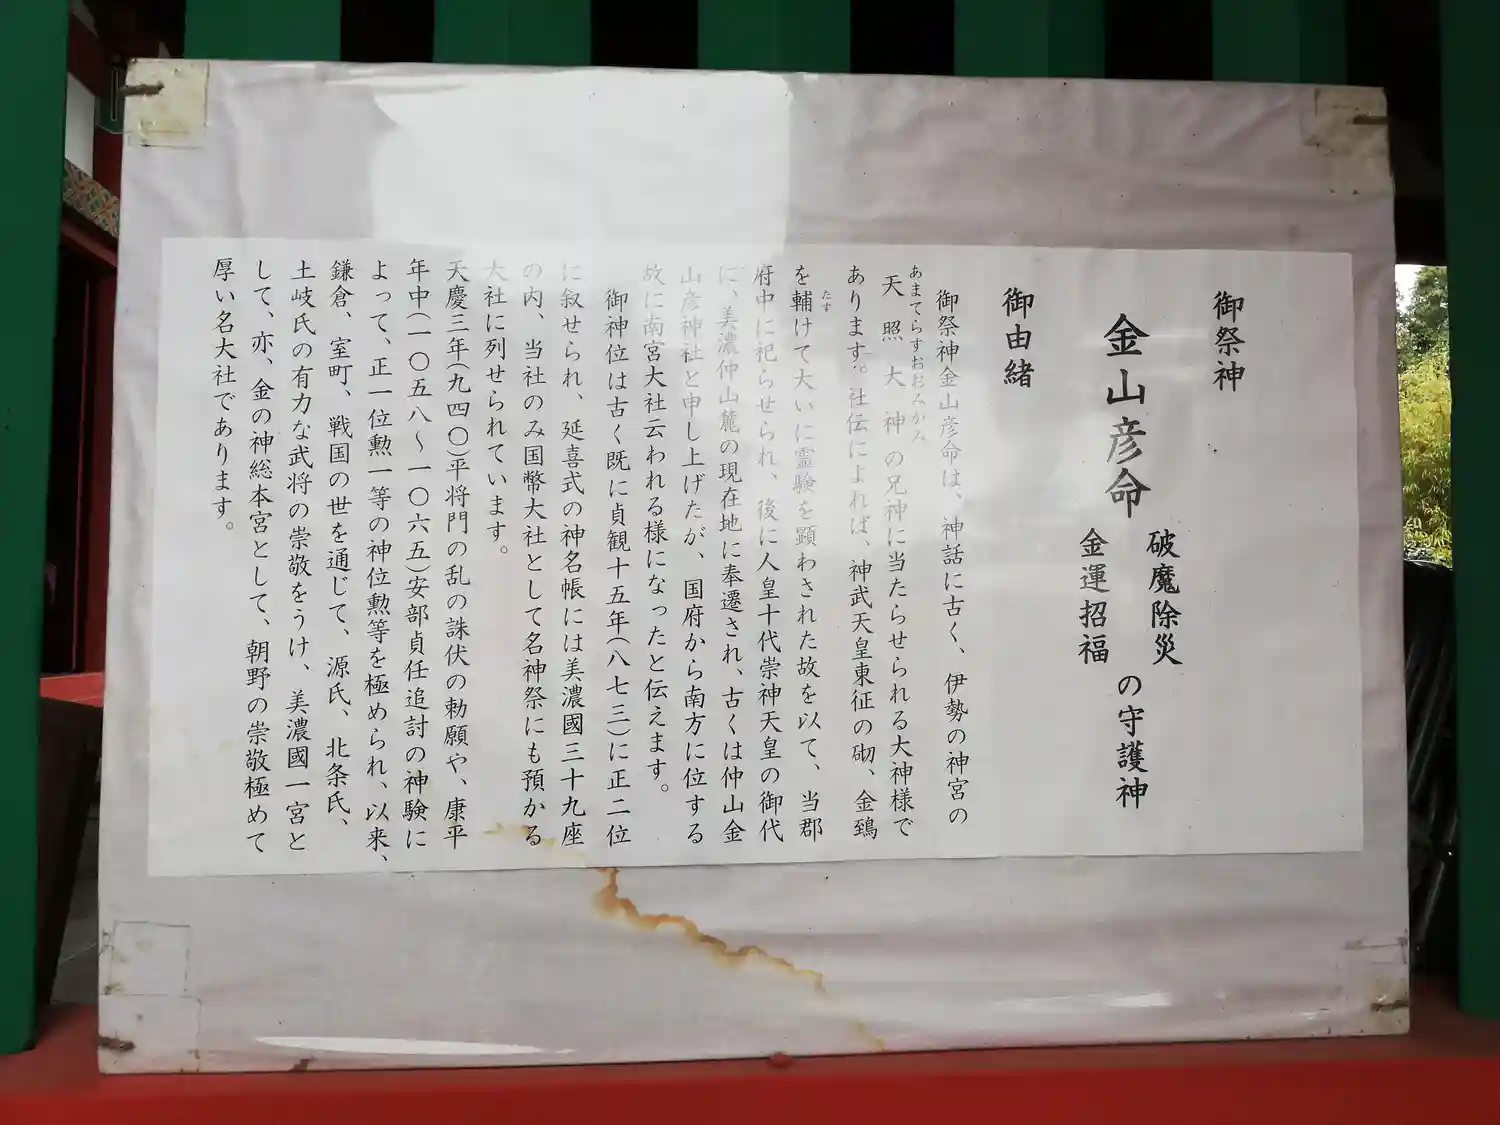 御祭神
金山彦命
破魔除災
金運招福
の守護神
御由緒
御祭神金山彦命は、神話に古く、伊勢の神宮の
あまてらすおおみかみ
天照大神の兄神に当たらせられる大神様で
あります。社伝によれば、神武天皇東征の砌、金鵄
たす
を輔けて大いに霊験を顕わされた故を以て、当郡
府中に祀らせられ、後に人皇十代崇神天皇の御代
に、美濃仲山麓の現在地に奉遷され、古くは仲山金
山彦神社と申し上げたが、国府から南方に位する
故に南宮大社云われる様になったと伝えます。
御神位は古く既に貞観十五年(八七三)に正二位
に叙せられ、延喜式の神名帳には美濃國三十九座
の内、当社のみ国幣大社として名神祭にも預かる
大社に列せられています。
天慶三年(九四〇)平将門の乱の誅伏の勅願や、康平
年中(一〇五八～一〇六五)安部貞任追討の神験に
よって、正一位勲一等の神位勲等を極められ、以来、
鎌倉、室町、戦国の世を通じて、源氏、北条氏、
土岐氏の有力な武将の崇敬をうけ、美濃國一宮と
して、亦、金の神総本宮として、朝野の崇敬極めて
厚い名大社であります。